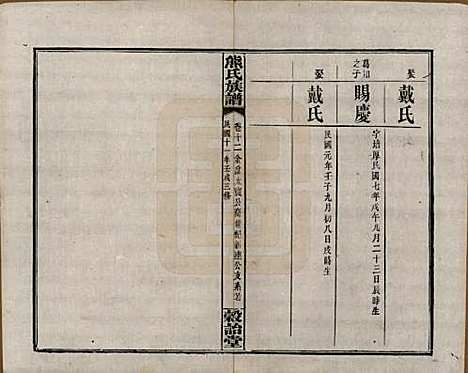 娶
戴氏
葛如
之子
賜慶
字培厚民國七年戊午九月二十三日辰時生
娶
戴氏
民國元年壬子九月初八日戌時生
熊氏族譜
卷十二
公支系
民國十一年壬戌三修
穀詒堂